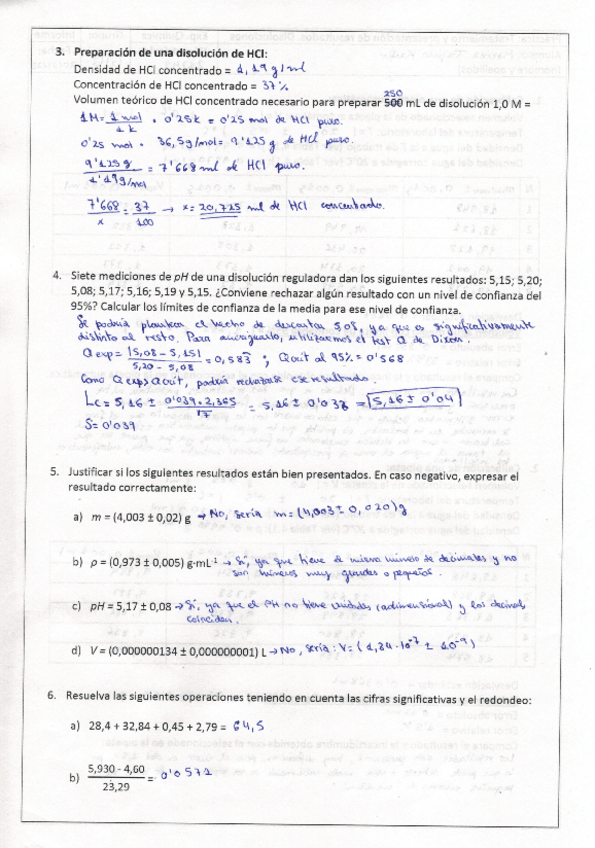 3. Preparación de una disolución de HCl:
Densidad de HCl concentrado = 1,19 g/ml
Concentración de HCl concentrado = 37%
250
Volumen teórico de HCl concentrado necesario para preparar 500 mL de disolución 1,0 M =
1M = 1 mol / 1 L · 0'25L = 0'25 mol de HCl puro.
0'25 mol · 36,5 g/mol = 9'125 g de HCl puro.
9'125 g / 1'19 g/ml = 7'668 ml de HCl puro.
7'668 / x = 37 / 100 → x = 20,725 ml de HCl concentrado.
4. Siete mediciones de pH de una disolución reguladora dan los siguientes resultados: 5,15; 5,20;
5,08; 5,17; 5,16; 5,19 y 5,15. ¿Conviene rechazar algún resultado con un nivel de confianza del
95%? Calcular los límites de confianza de la media para ese nivel de confianza.
Se podría plantear el hecho de descartar 5,08, ya que es significativamente
distinto al resto. Para averiguarlo, utilizaremos el test Q de Dixon.
Q exp = |5,08 - 5,15| / 5,20 - 5,08 = 0,583 ; Qcrit al 95% = 0'568
Como Q exp > Q crit, podría rechazarse ese resultado.
Lc = 5,16 ± 0'039 · 2,365 / √7 = 5,16 ± 0'03 = 5,16 ± 0'04
S = 0'039
5. Justificar si los siguientes resultados están bien presentados. En caso negativo, expresar el
resultado correctamente:
a) m = (4,003 ± 0,02) g → No, sería m = (4,003 ± 0,020) g
b) ρ = (0,973 ± 0,005) g·mL⁻¹ → Sí, ya que tiene el mismo número de decimales y no
son números muy grandes o pequeños.
c) pH = 5,17 ± 0,08 → Sí, ya que el pH no tiene unidades (adimensional) y los decimales
coinciden.
d) V = (0,000000134 ± 0,000000001) L → No, sería: V = (1,34·10⁻⁷ ± 10⁻⁹)
6. Resuelva las siguientes operaciones teniendo en cuenta las cifras significativas y el redondeo:
a) 28,4 + 32,84 + 0,45 + 2,79 = 64,5
b) 5,930 - 4,60 / 23,29 = 0'0571